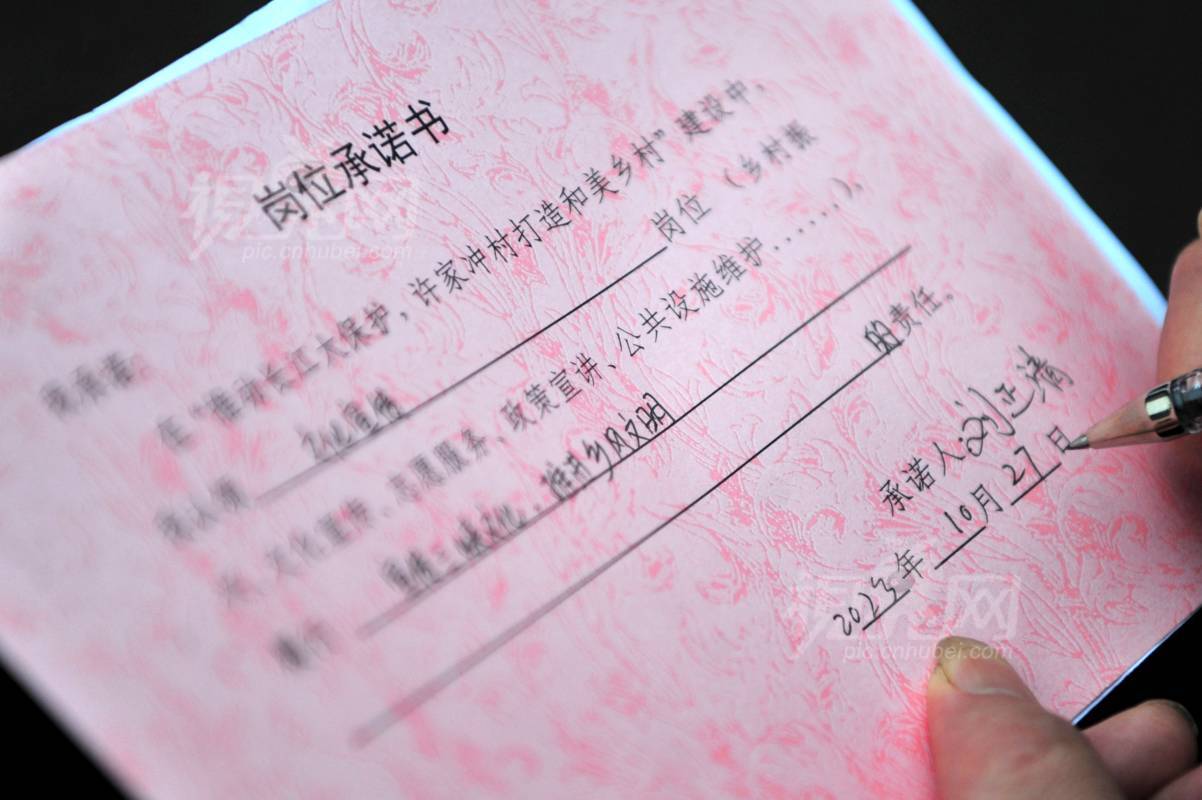 岗位承诺书
我承诺：
在“推动长江大保护，许家冲村打造和美乡村”建设中，
我认领 文化宣传 岗位（乡村振
兴、文化宣传、志愿服务、政策宣讲、公共设施维护......），
履行 宣传三峡文化、推进乡风文明
的责任。
承诺人：刘亚清
2023年10月27日
pic.cnhubei.com
pic.cnhubei.com